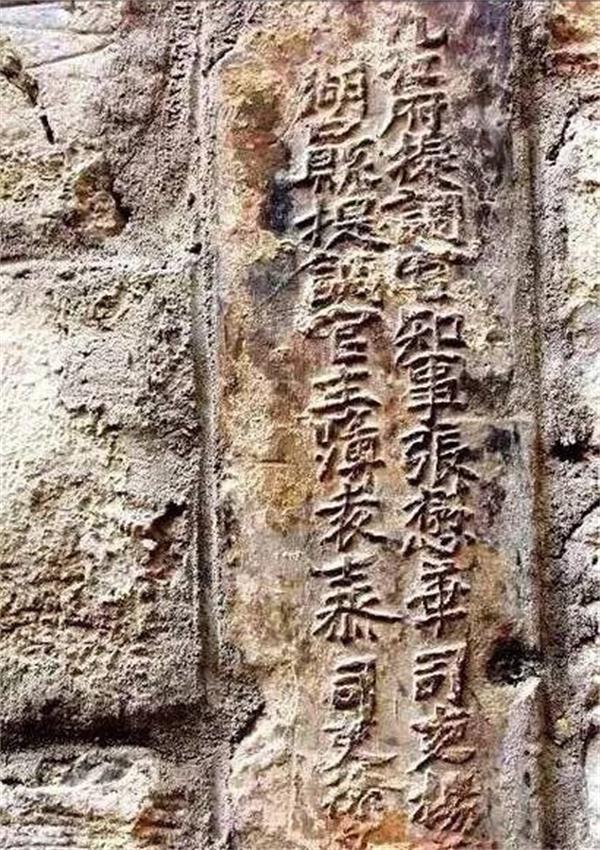 九江府提調官知事張懋華司吏楊
湖口縣提調官主薄袁泰司吏